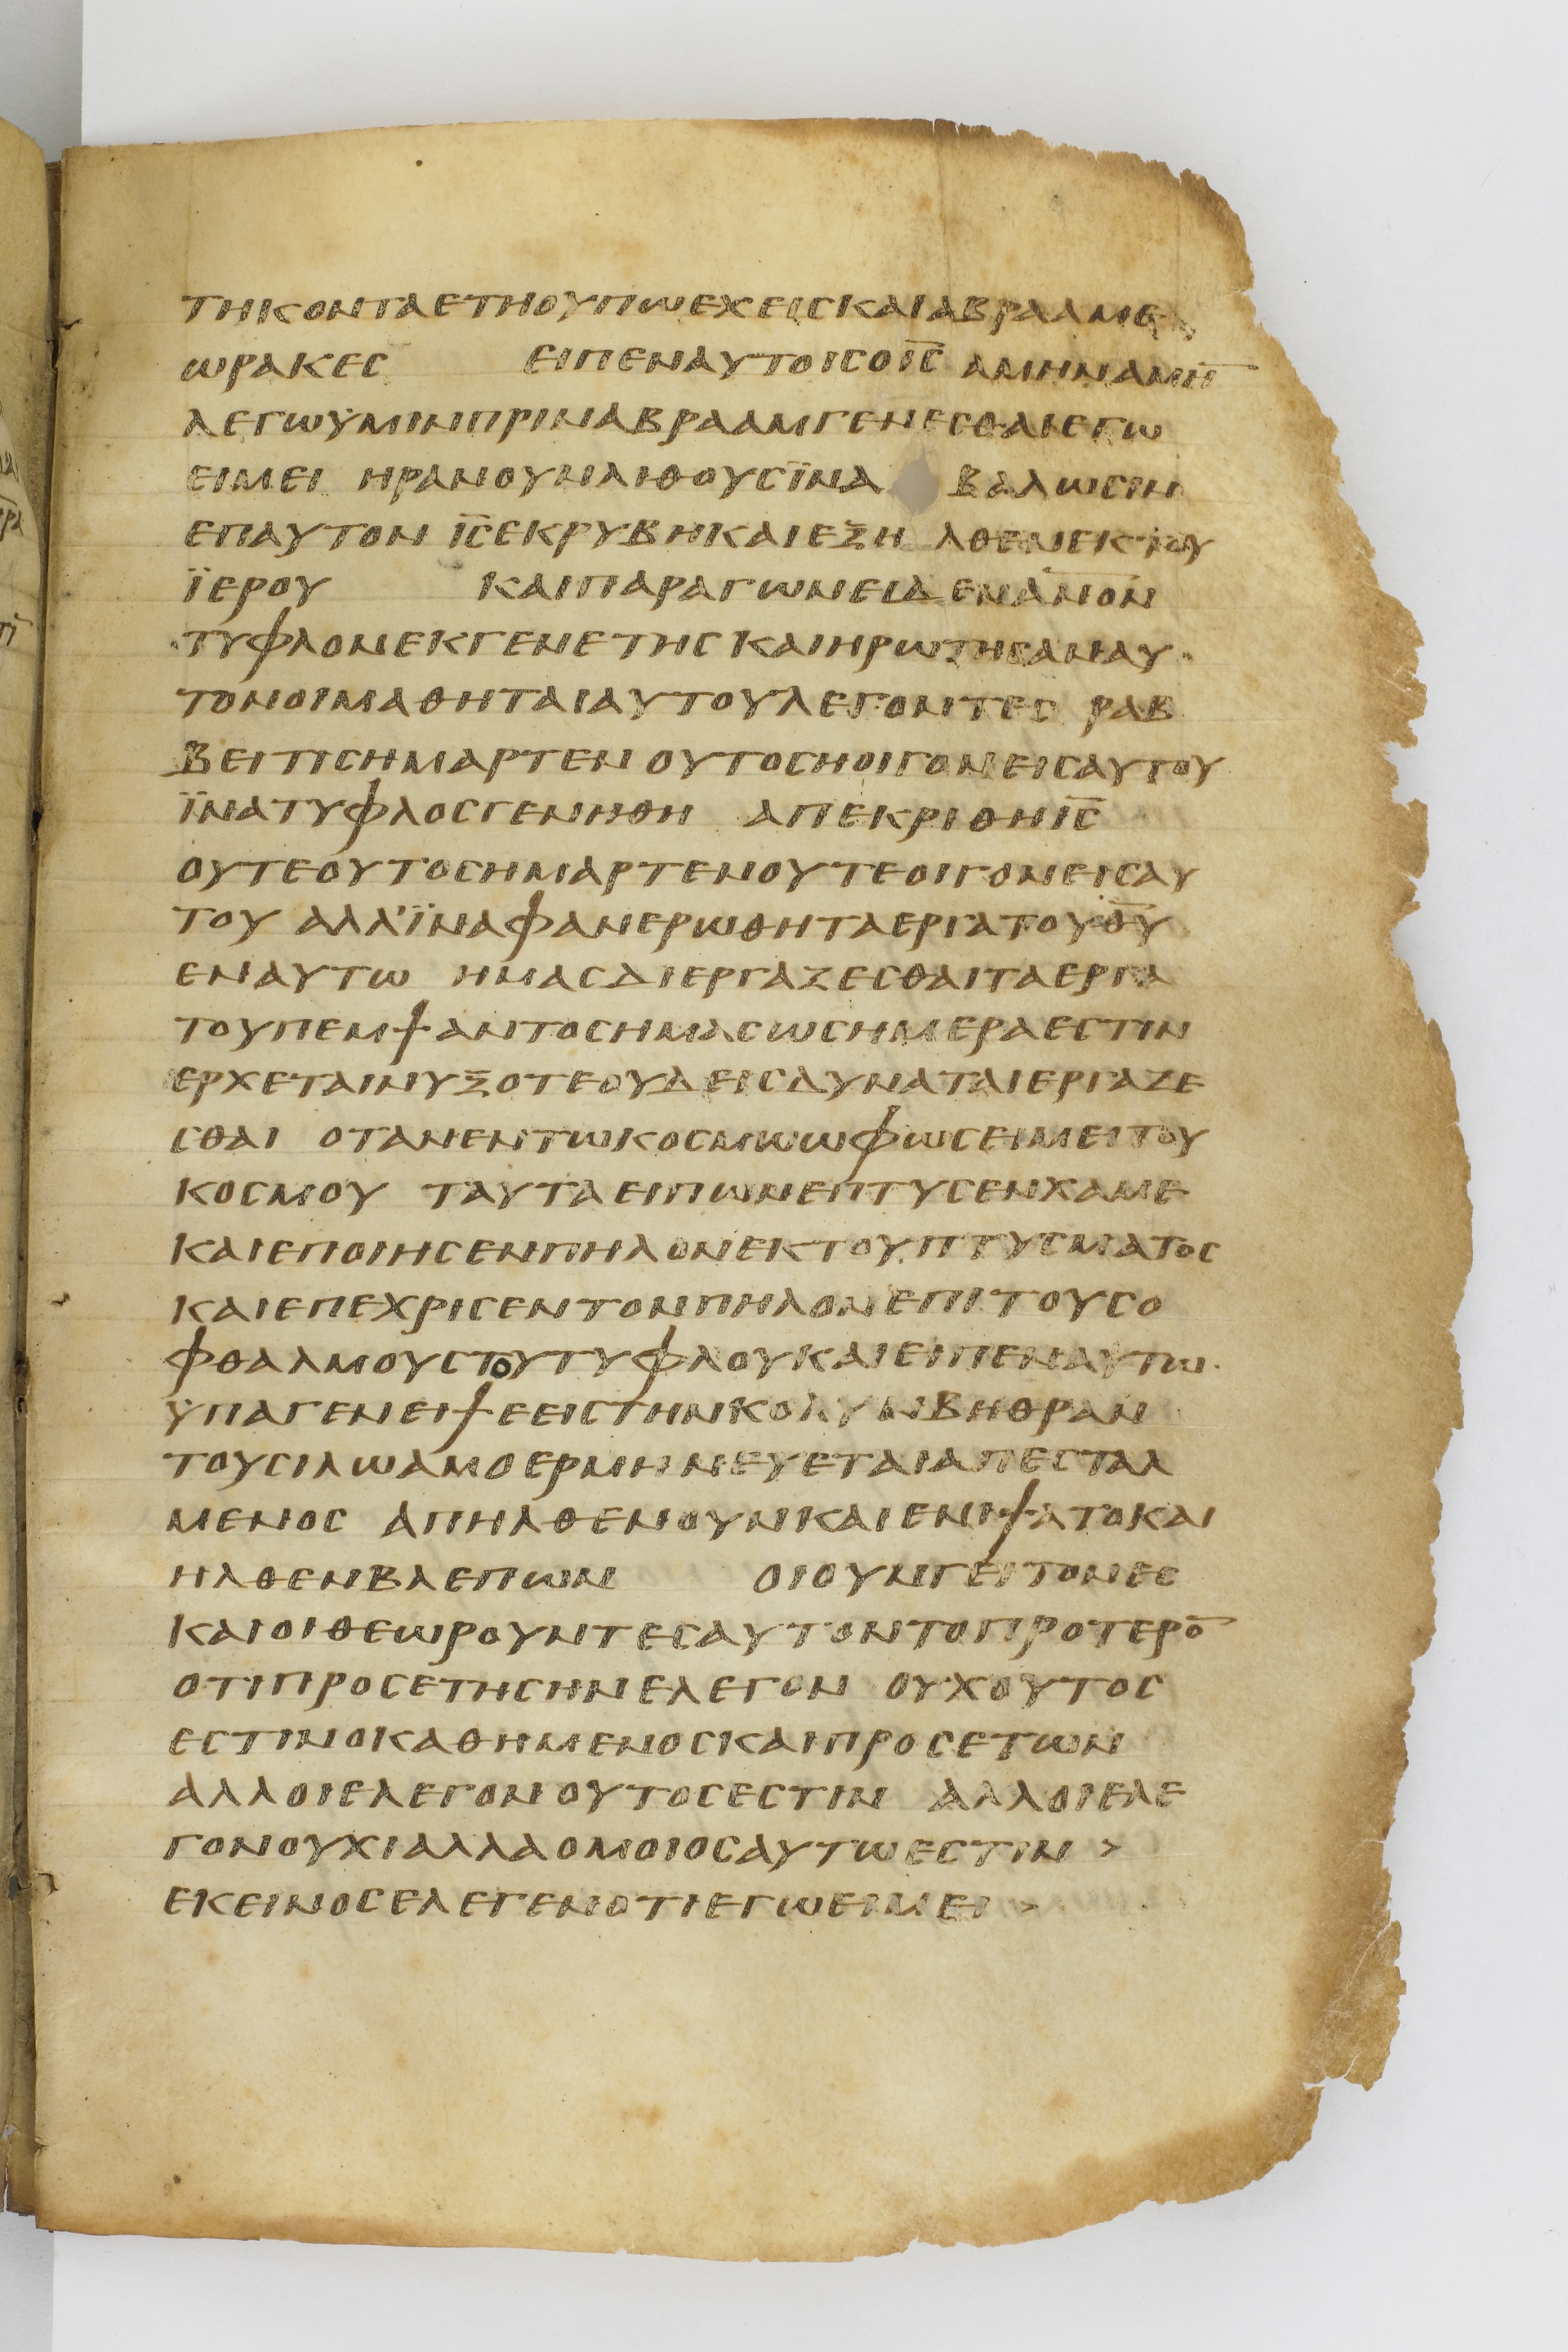 ΤΗΚΟΝΤΑΕΤΗΟΥΠΩΕΧΕΙΣΚΑΙΑΒΡΑΑΜΕ
ΩΡΑΚΕΣ ΕΙΠΕΝΑΥΤΟΙΣΟΙ̅Σ̅ ΑΜΗΝΑΜΗ̅
ΛΕΓΩΫΜΙΝΠΡΙΝΑΒΡΑΑΜΓΕΝΕΣΘΑΙΕΓΩ
ΕΙΜΕΙ ΗΡΑΝΟΥΝΛΙΘΟΥΣΪΝΑ ΒΑΛΩΣΙΝ
ΕΠΑΥΤΟΝ Ι̅Σ̅ΕΚΡΥΒΗΚΑΙΕΞΗ ΛΘΕΝΕΚΤΟΥ
ΪΕΡΟΥ ΚΑΙΠΑΡΑΓΩΝΕΙΔΕΝΑ̅Ν̅Ο̅Ν̅
ΤΥΦΛΟΝΕΚΓΕΝΕΤΗΣΚΑΙΗΡΩΤΗΣΑΝΑΥ
ΤΟΝΟΙΜΑΘΗΤΑΙΑΥΤΟΥΛΕΓΟΝΤΕΣ ΡΑΒ
ΒΕΙΤΙΣΗΜΑΡΤΕΝ ΟΥΤΟΣΗΟΙΓΟΝΕΙΣΑΥΤΟΥ
ΪΝΑΤΥΦΛΟΣΓΕΝΗΘΗ ΑΠΕΚΡΙΘΗΙ̅Σ̅
ΟΥΤΕΟΥΤΟΣΗΜΑΡΤΕΝΟΥΤΕΟΙΓΟΝΕΙΣΑΥ
ΤΟΥ ΑΛΛ’ΪΝΑΦΑΝΕΡΩΘΗΤΑΕΡΓΑΤΟΥΘ̅Υ̅
ΕΝΑΥΤΩ ΗΜΑΣΔΙΕΡΓΑΖΕΣΘΑΙΤΑΕΡΓΑ
ΤΟΥΠΕΜΨΑΝΤΟΣΗΜΑΣΩΣΗΜΕΡΑΕΣΤΙΝ
ΕΡΧΕΤΑΙΝΥΞΟΤΕΟΥΔΕΙΣΔΥΝΑΤΑΙΕΡΓΑΖΕ
ΣΘΑΙ ΟΤΑΝΕΝΤΩΚΟΣΜΩΩΦΩΣΕΙΜΕΙΤΟΥ
ΚΟΣΜΟΥ ΤΑΥΤΑΕΙΠΩΝΕΠΤΥΣΕΝΧΑΜΕ
ΚΑΙΕΠΟΙΗΣΕΝΠΗΛΟΝΕΚΤΟΥΠΤΥΣΜΑΤΟΣ
ΚΑΙΕΠΕΧΡΙΣΕΝΤΟΝΠΗΛΟΝΕΠΙΤΟΥΣΟ
ΦΘΑΛΜΟΥΣΤΟΥΤΥΦΛΟΥΚΑΙΕΙΠΕΝΑΥΤΩ
ΫΠΑΓΕΝΕΙΨΕΕΙΣΤΗΝΚΟΛΥΜΒΗΘΡΑΝ
ΤΟΥΣΙΛΩΑΜΟΕΡΜΗΝΕΥΕΤΑΙΑΠΕΣΤΑΛ
ΜΕΝΟΣ ΑΠΗΛΘΕΝΟΥΝΚΑΙΕΝΙΨΑΤΟΚΑΙ
ΗΛΘΕΝΒΛΕΠΩΝ ΟΙΟΥΝΓΕΙΤΟΝΕΣ
ΚΑΙΟΙΘΕΩΡΟΥΝΤΕΣΑΥΤΟΝΤΟΠΡΟΤΕΡΟ̅
ΟΤΙΠΡΟΣΕΤΗΣΗΝΕΛΕΓΟΝ ΟΥΧΟΥΤΟΣ
ΕΣΤΙΝΟΚΑΘΗΜΕΝΟΣΚΑΙΠΡΟΣΕΤΩΝ
ΑΛΛΟΙΕΛΕΓΟΝΟΥΤΟΣΕΣΤΙΝ ΑΛΛΟΙΕΛΕ
ΓΟΝΟΥΧΙΑΛΛΑΟΜΟΙΟΣΑΥΤΩΕΣΤΙΝ >
ΕΚΕΙΝΟΣΕΛΕΓΕΝΟΤΙΕΓΩΕΙΜΕΙ >